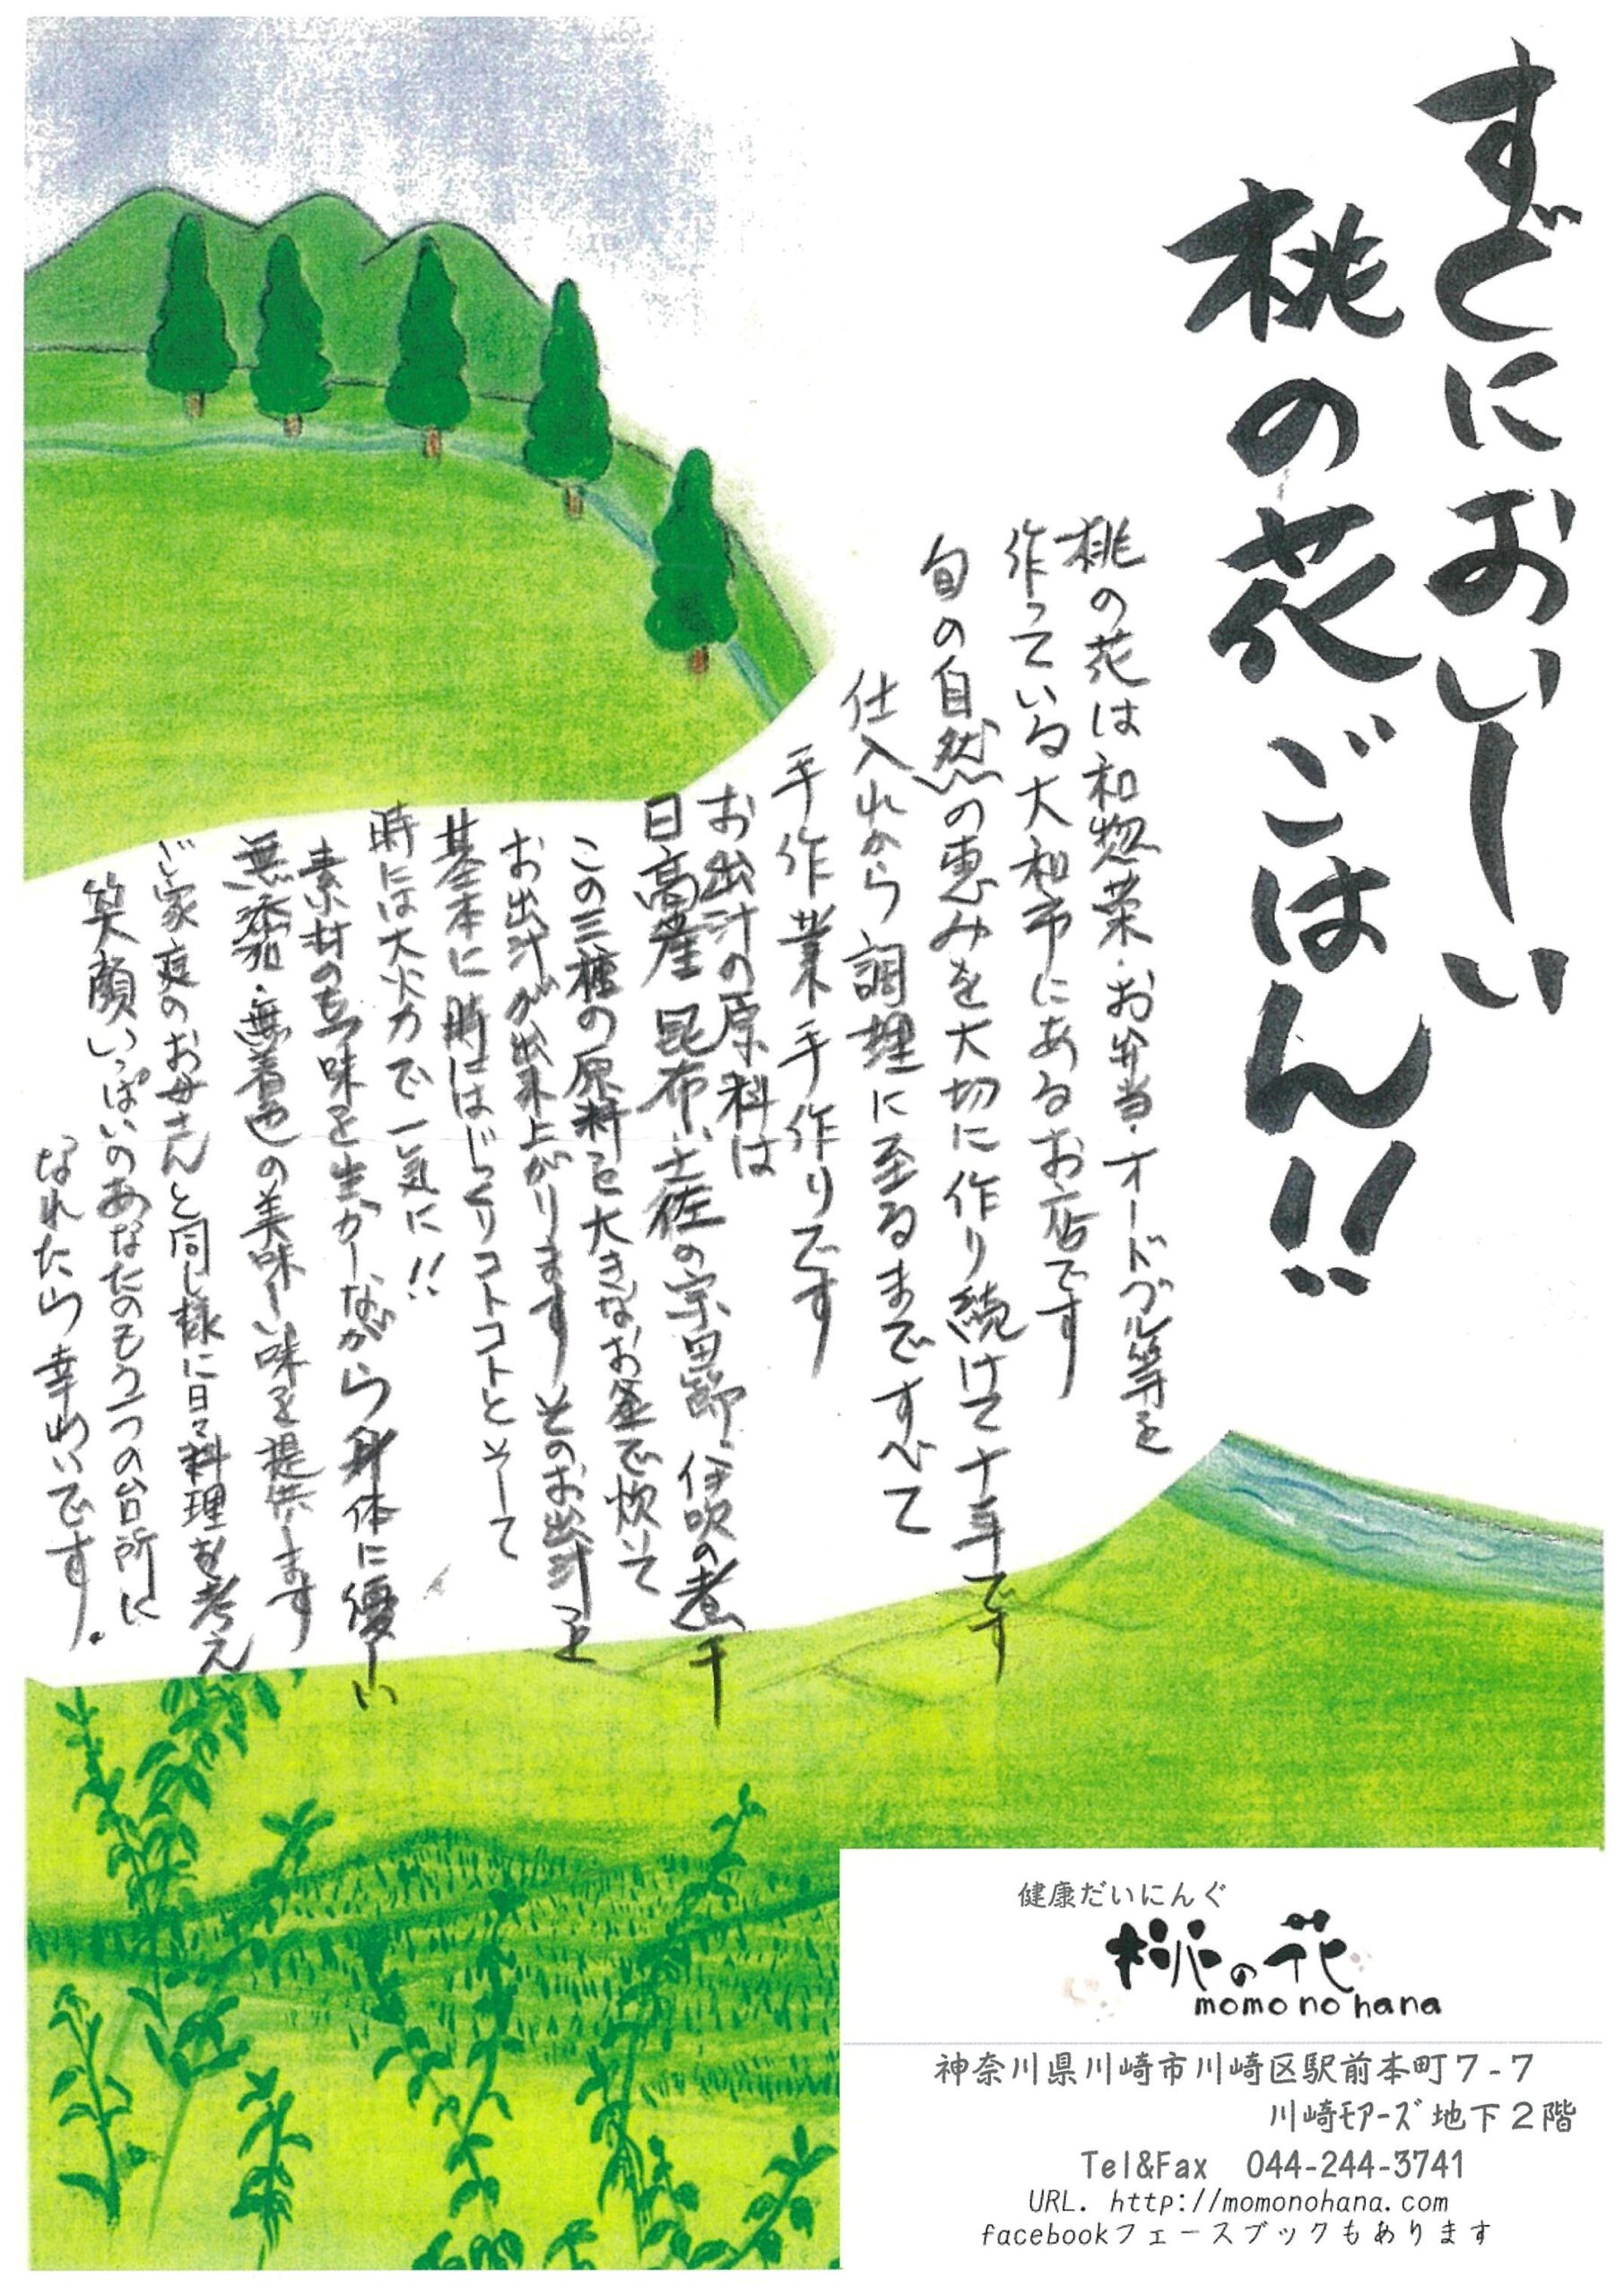 すぐにおいしーい
桃の花ごはん!!
桃の花は和惣菜・お弁当・オードブル等を
作っている大和市にあるお店です
旬の自然の恵みを大切に作り続けて十年です
仕入れから調理に至るまですべて
手作業手作りです
お出汁の原料は
日高産昆布・土佐の宗田節・伊吹の煮干
この三種の原料を大きなお釜で炊いて
お出汁が出来上がります そのお出汁を
基本に時にはじっくりコトコトと そして
時には大火力で一気に!!
素材のもつ味を生かしながら身体に優しい
無添加・無着色の美味しい味を提供します
ご家庭のお母さんと同じ様に日々料理を考え
笑顔いっぱいのあなたのもう一つの台所に
なれたら幸いです。
健康だいにんぐ
桃の花
momo no hana
神奈川県川崎市川崎区駅前本町7-7
川崎モアーズ地下2階
Tel&Fax 044-244-3741
URL. http://momonohana.com
facebookフェースブックもあります